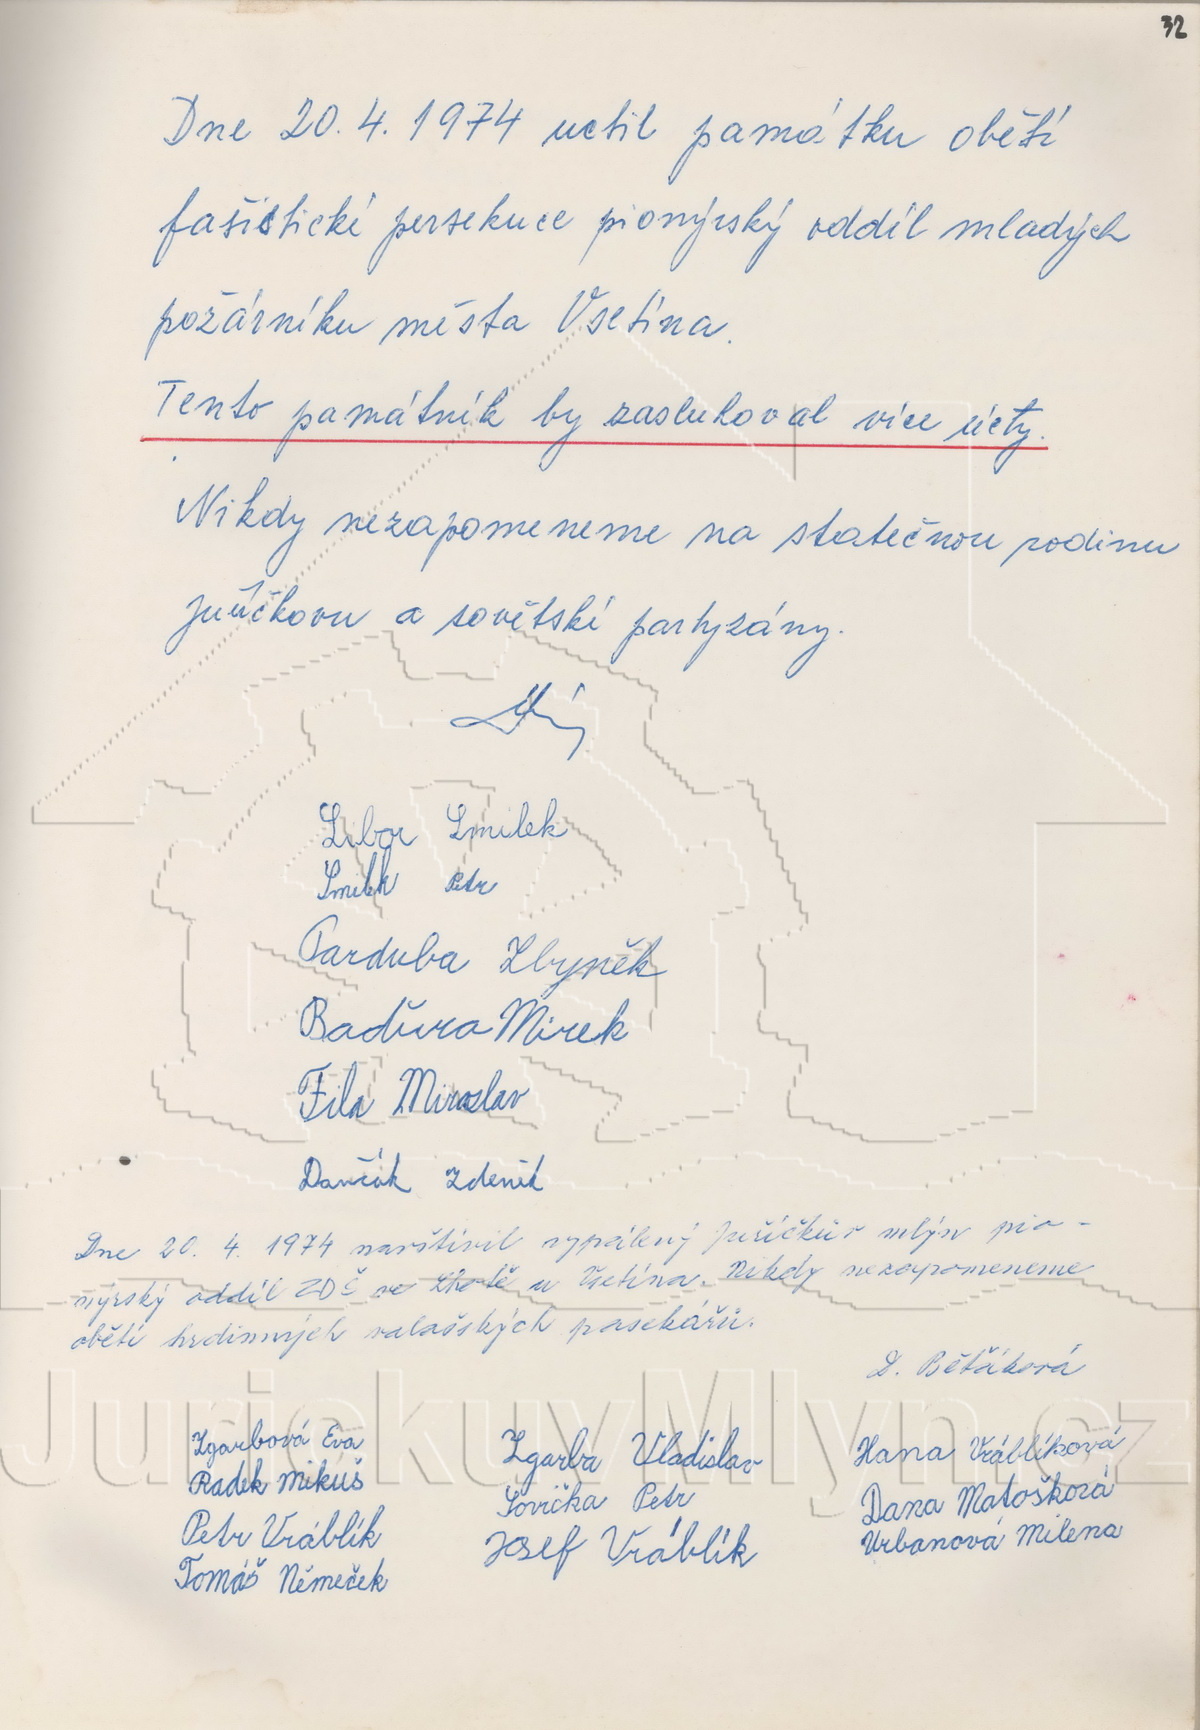 32
Dne 20. 4. 1974 uctil památku obětí
fašistické persekuce pionýrský oddíl mladých
požárníku města Vsetína.
Tento památník by zasluhoval více úcty.
Nikdy nezapomeneme na statečnou rodinu
a sovětské partyzány.
Libor Smilek
Smilek Petr
Parduba Zbyněk
Baďura Mirek
Fila Miroslav
Dančák Zdeněk
Dne 20. 4. 1974 navštívil vypálený Juříčkův mlýn pio-
nýrský oddíl ZDŠ ve Lhotě u Vsetína. Nikdy nezapomeneme
obětí hrdinných valašských pasekářů.
D. Běťáková
Zgarbová Eva Zgarba Vladislav Hana Vráblíková
Radek Mikuš Petr Dana Matošková
Petr Vráblík Josef Vráblík Urbanová Milena
Tomáš Němeček
JurickuvMlyn.cz